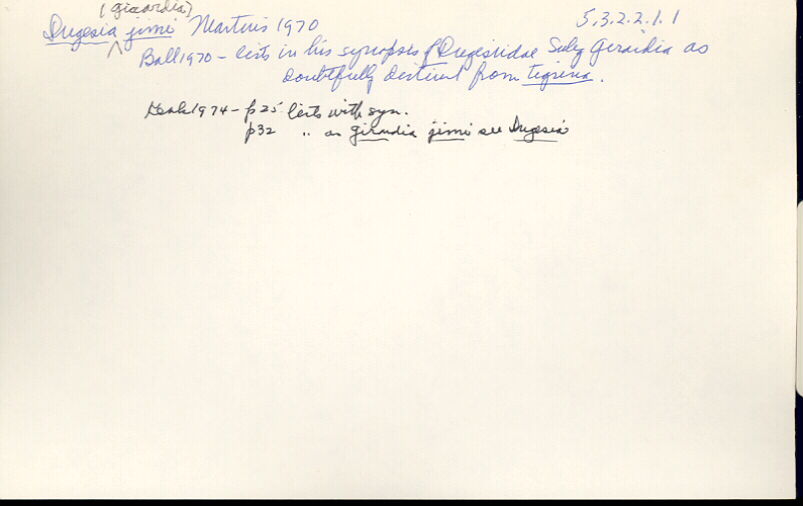 (Girardia)
Dugesia ^ jimi Martins 1970 5.3.2.2.1.1
Ball 1970 - lists in his synopsis of Dugesiidae Subg Girardia as
doubtfully distinct from tigrina.
1974 - p25 lists with syn.
p32 " as girardia jimi see Dugesia